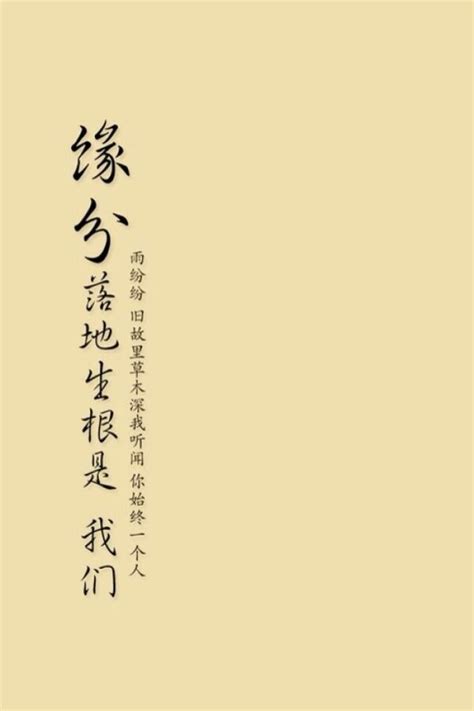 雨纷纷 旧故里草木深我听闻 你始终一个人
缘分落地生根是 我们